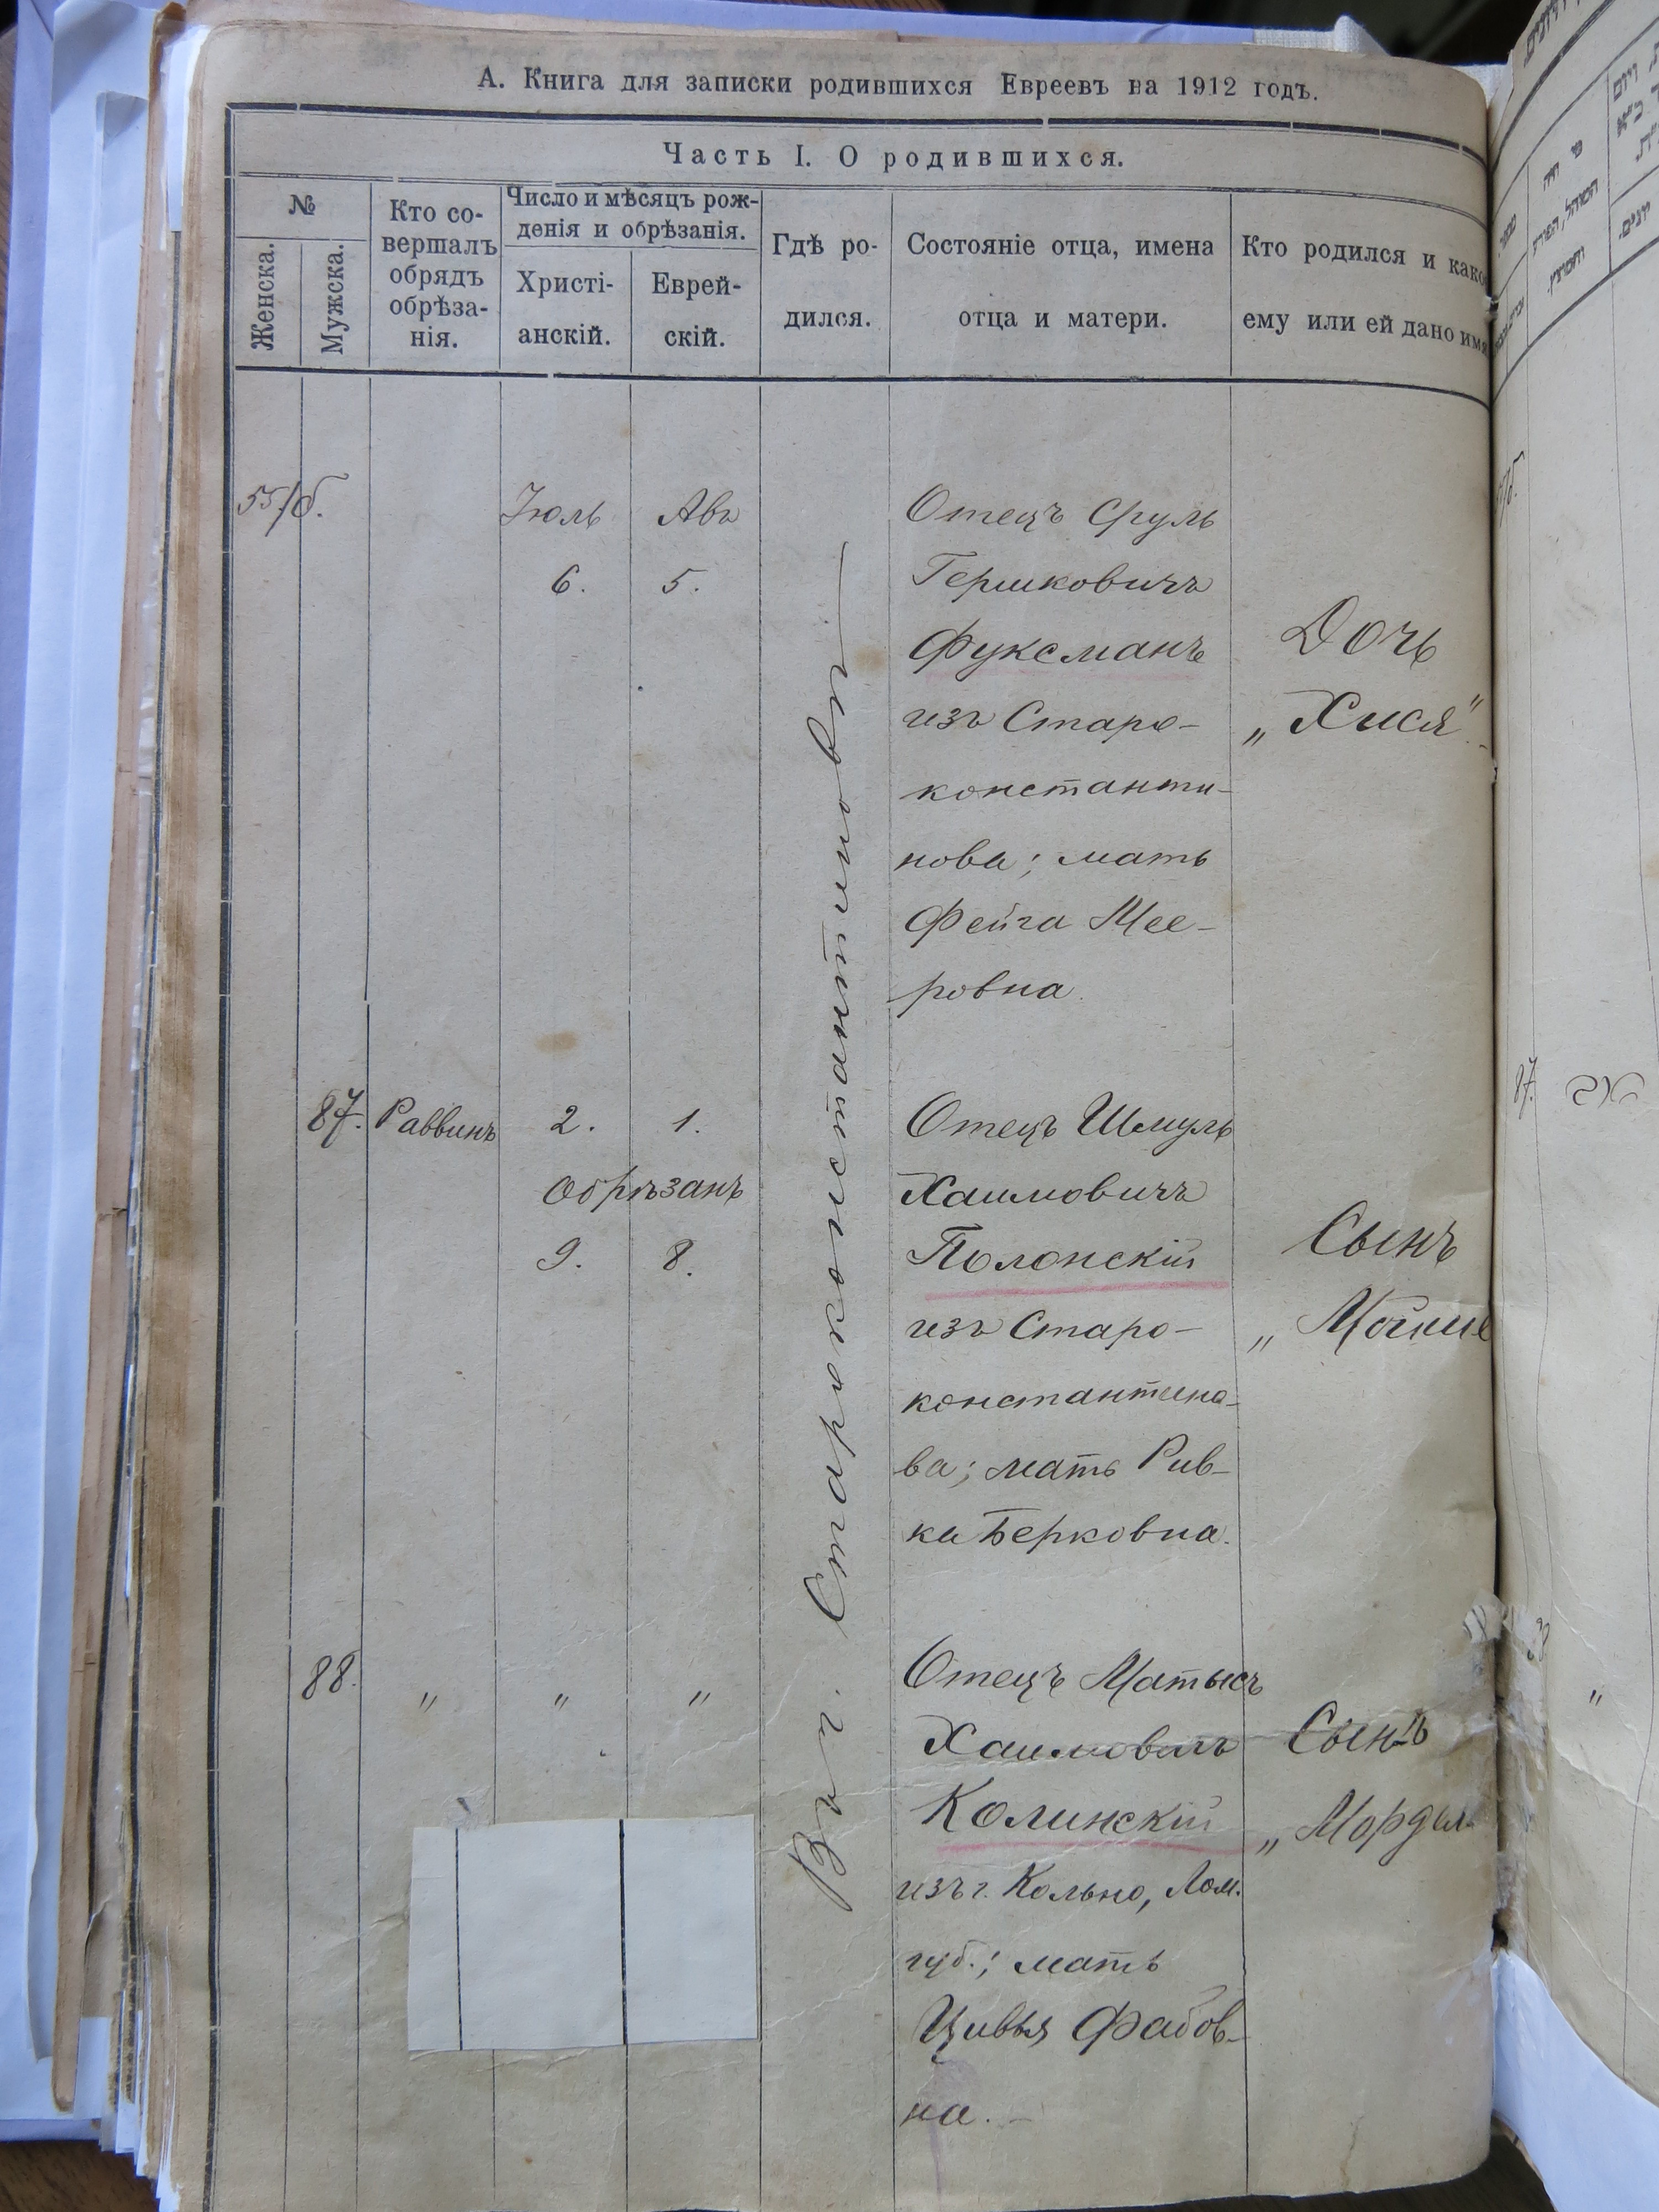 А. Книга для записки родившихся Евреевъ на 1912 годъ.
Часть I. О родившихся.
№
Женска.
Мужска.
Кто со-
вершалъ
обрядъ
обрѣза-
нія.
Число и мѣсяцъ рож-
денія и обрѣзанія.
Христі-
анскій.
Еврей-
скій.
Гдѣ ро-
дился.
Состояніе отца, имена
отца и матери.
Кто родился и како
ему или ей дано имя
55/б.
Іюль
6.
Авъ
5.
Въ г. Староконстантиновѣ
Отецъ Сруль
Гершковичъ
Фуксманъ
изъ Старо-
константи-
нова; мать
Фейга Мее-
ровна.
Дочь
„Хися".
87.
Раввинъ
2.
1.
Обрѣзанъ
9.
8.
Отецъ Шмуль
Хаимовичъ
Полонскій
изъ Старо-
константино-
ва; мать Рив-
ка Берковна.
Сынъ
„Мойше
88.
"
"
"
Отецъ Матысъ
Хаимовичъ
Колинскій
изъ г. Кольно, Лом.
губ.; мать
Цивья Фабов-
на.-
Сынъ
87.
"